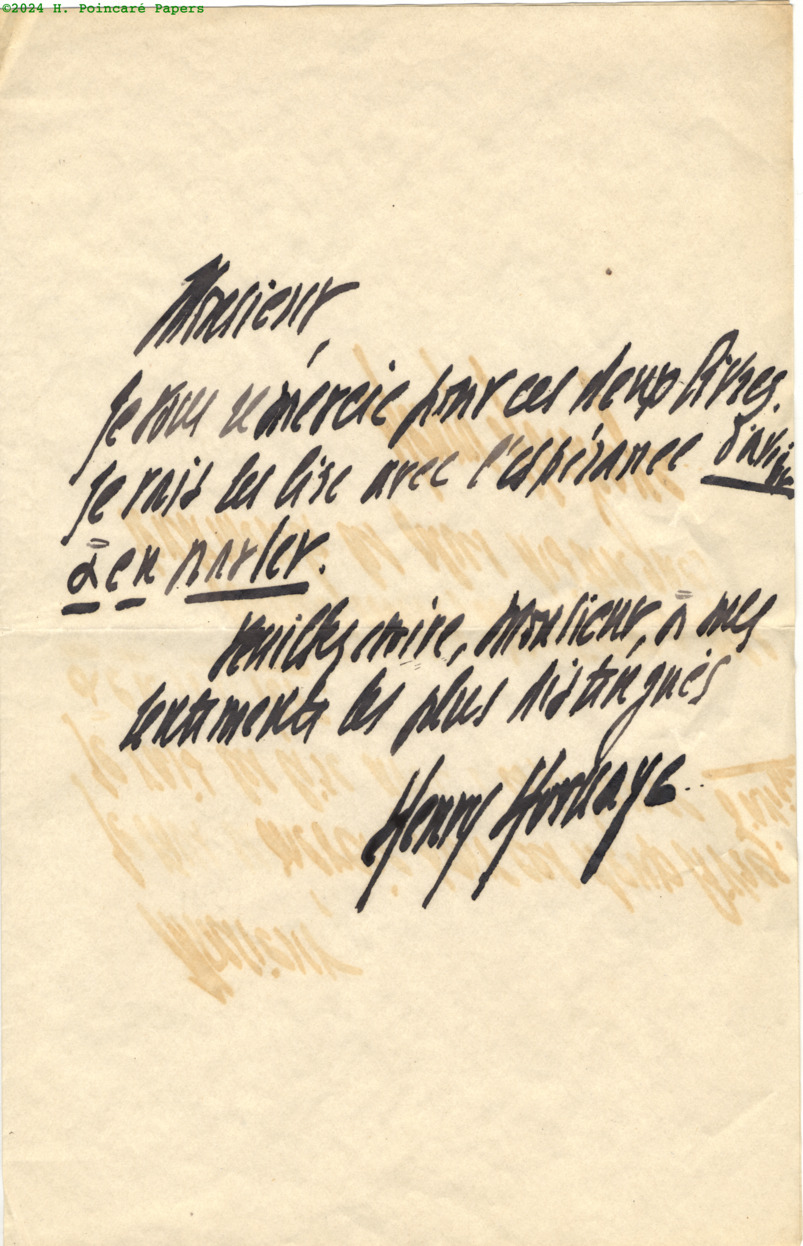 ©2024 H. Poincaré Papers
Monsieur,
je vous remercie pour ces deux livres.
Je vais les lire avec l'espérance d'avoir
à en parler.
Veuillez croire, Monsieur, à mes
sentiments les plus distingués
Henry